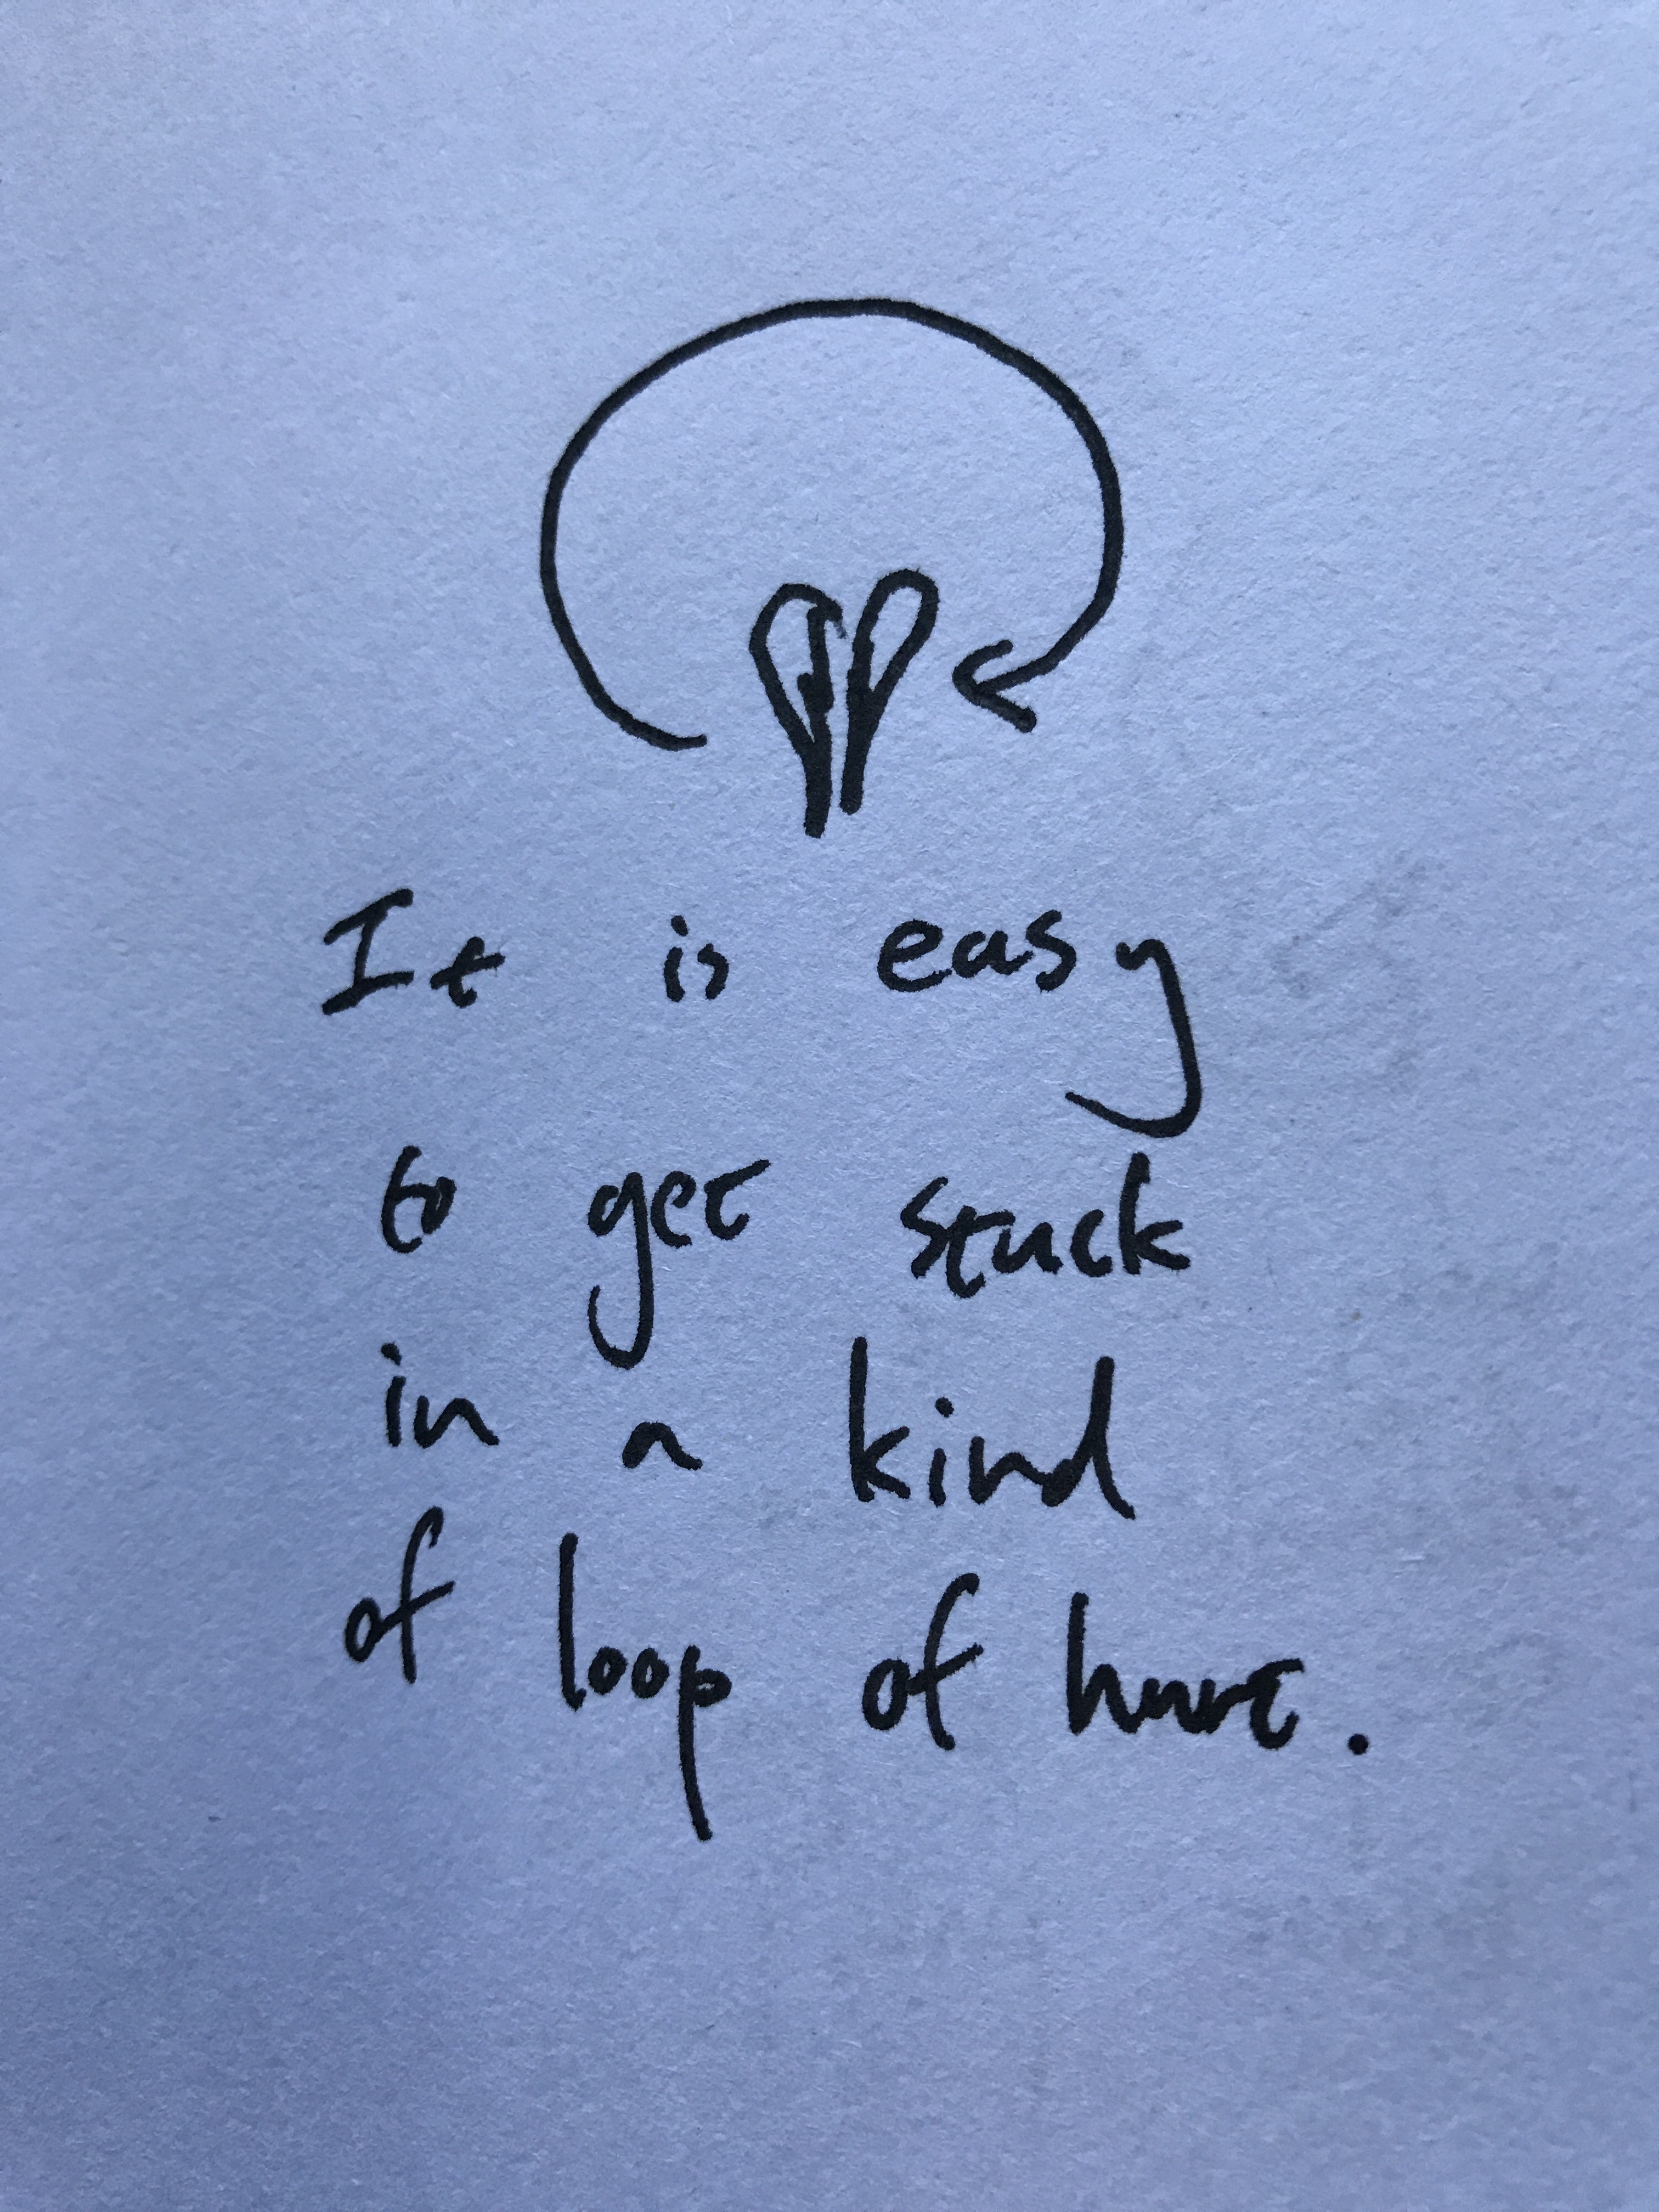 It is easy
to get stuck
in a kind
of loop of hurt.